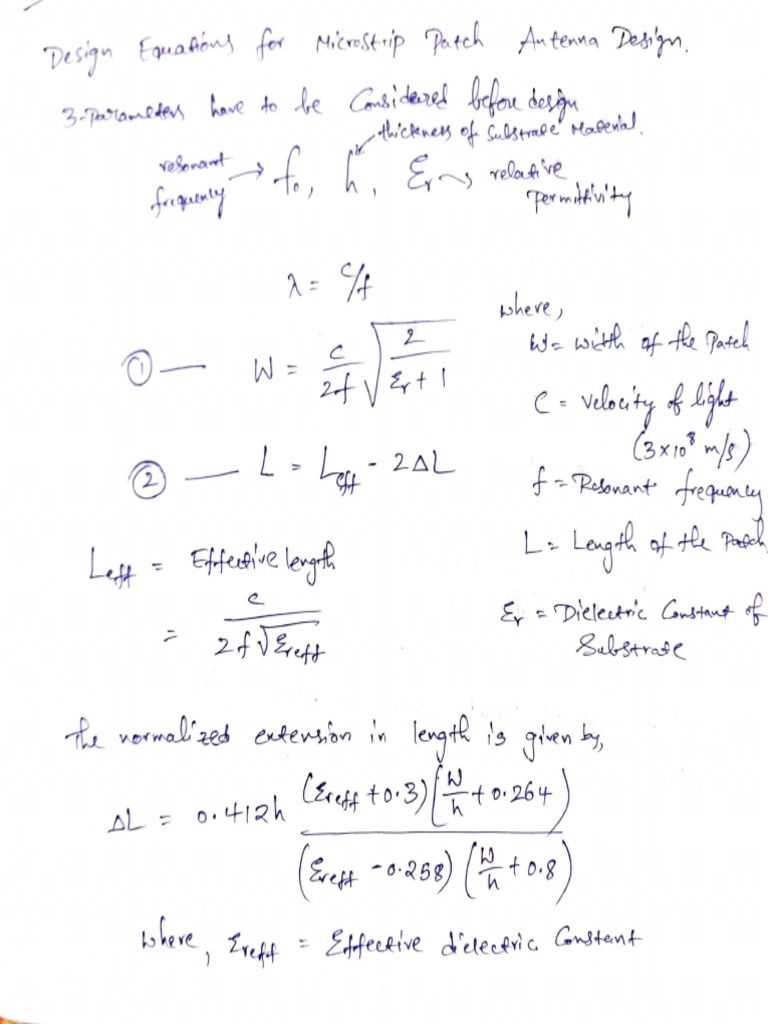 Design Equations for Microstrip Patch Antenna Design.
3-Parameters have to be Considered before design
thickness of Substrate Material.
resonant frequency → f₀, h, εr → relative permittivity
λ = c/f
① — W = c/2f √(2/(εr + 1))
② — L = Leff - 2ΔL
where,
W = width of the Patch
C = Velocity of light
(3×10⁸ m/s)
f = Resonant frequency
L = Length of the Patch
εr = Dielectric Constant of
Substrate
Leff = Effective length
= c/(2f√εreff)
The normalized extension in length is given by,
ΔL = 0.412h ((εreff + 0.3)(W/h + 0.264))/((εreff - 0.258)(W/h + 0.8))
where, εreff = Effective dielectric Constant